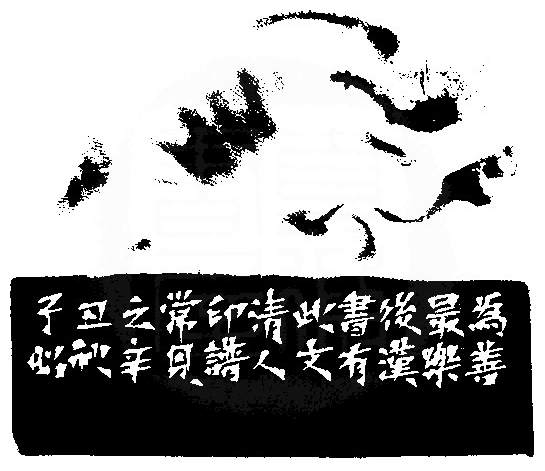 為善
最樂
後漢
書有
此文
清人
印譜
常見
之辛
丑秋
子